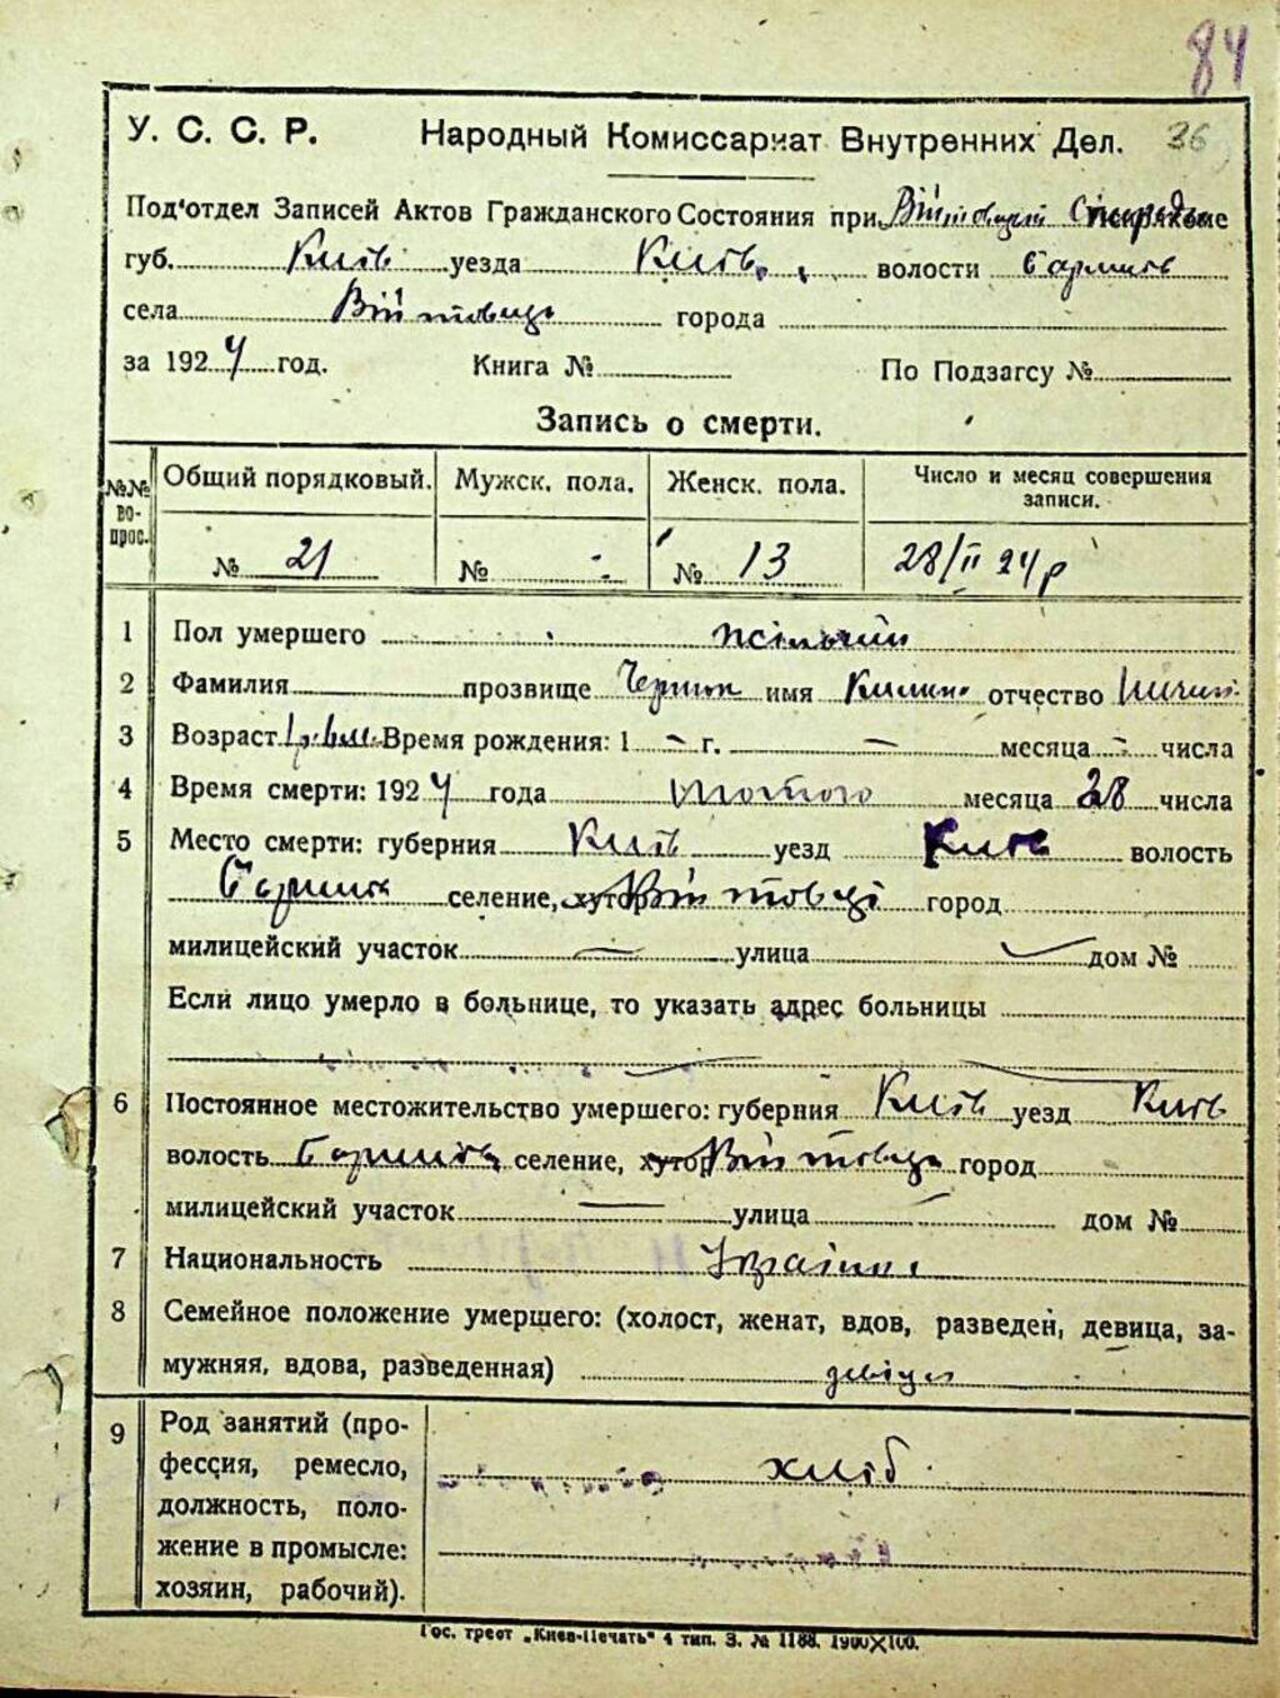 84
У. С. С. Р. Народный Комиссариат Внутренних Дел. 36
Под'отдел Записей Актов Гражданского Состояния при
губ. Київ уезда Київ. волости Баришів
села Війтовці города
за 1924 год. Книга № По Подзагсу №
Запись о смерти.
№№ вопрос. Общий порядковый. Мужск. пола. Женск. пола. Число и месяц совершения записи.
№ 21 № - № 13 28/II 24 р
1 Пол умершего жіночий
2 Фамилия прозвище имя Килина отчество
3 Возраст Время рождения: 1 - г. - месяца - числа
4 Время смерти: 1924 года Лютого месяца 28 числа
5 Место смерти: губерния Київ уезд Київ волость
Бариш селение, хутор Війтовці город
милицейский участок — улица дом №
Если лицо умерло в больнице, то указать адрес больницы
6 Постоянное местожительство умершего: губерния Київ уезд Київ
волость Баришів селение, хутор Війтовці город
милицейский участок — улица дом №
7 Национальность Україн
8 Семейное положение умершего: (холост, женат, вдов, разведен, девица, за-
мужняя, вдова, разведенная) девіця
9 Род занятий (про-
фессия, ремесло, хліб
должность, поло-
жение в промысле:
хозяин, рабочий).
Гос. трест „Киев-Печать“ 4 тип. З. № 1188. 1900×100.